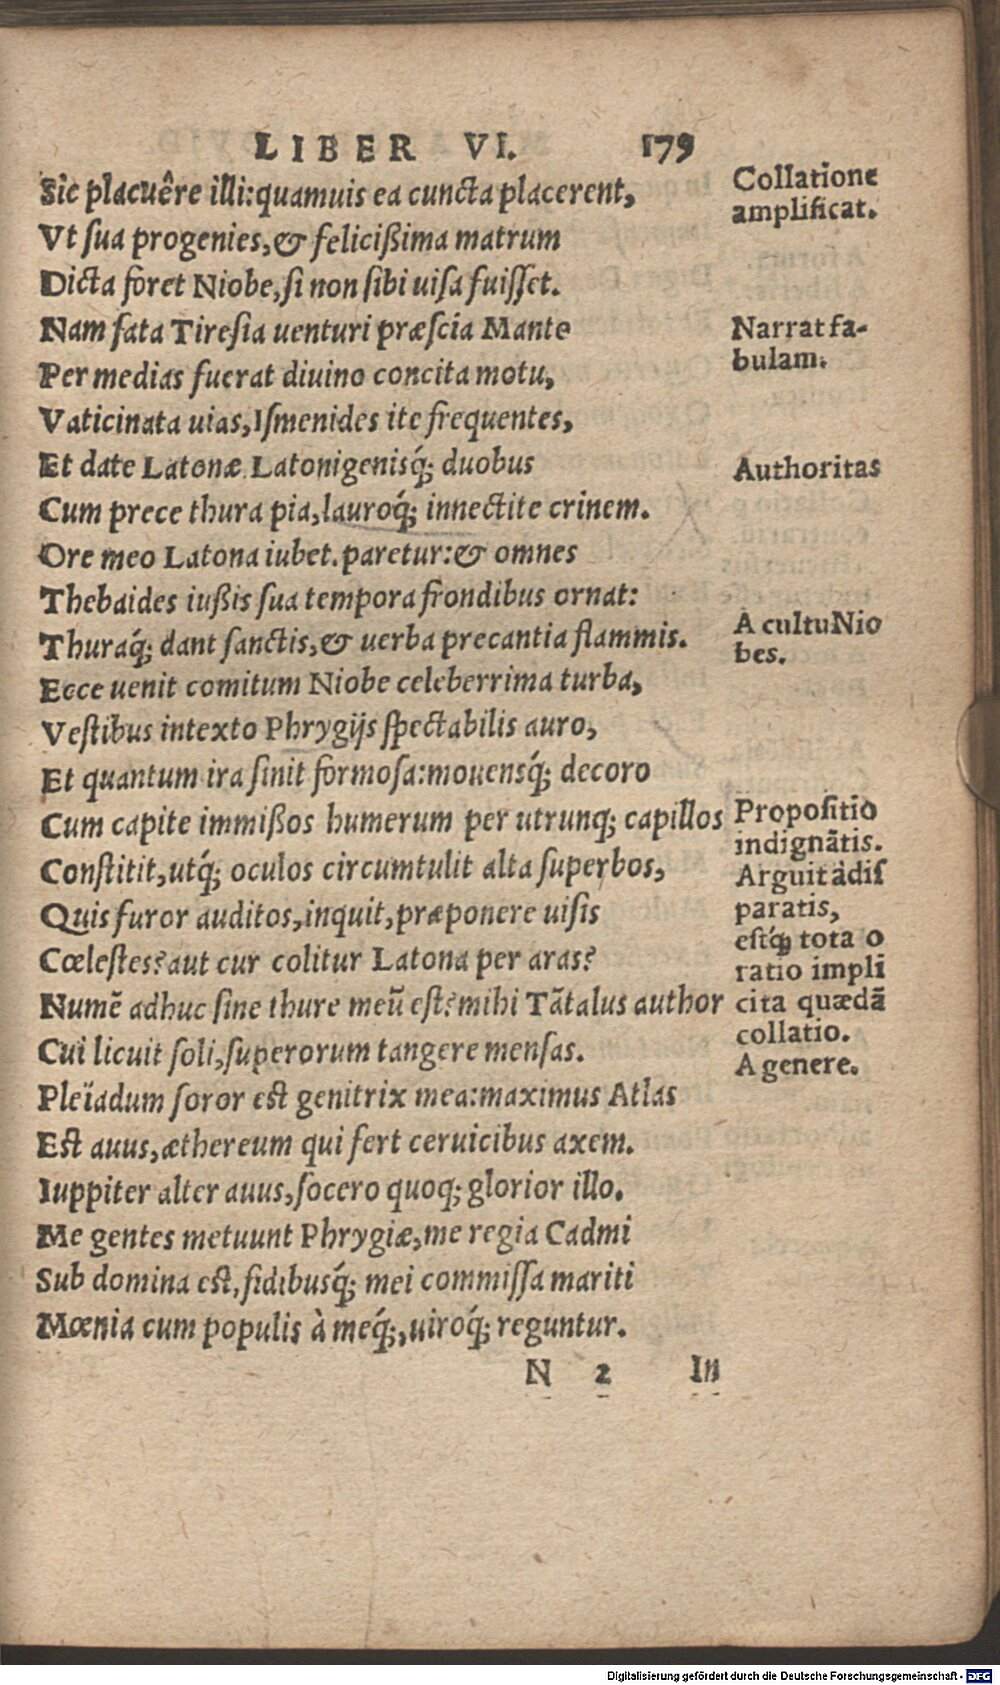 LIBER VI. 179
Sic placuêre illi: quamuis ea cuncta placerent,
Vt sua progenies, & felicißima matrum
Dicta foret Niobe, si non sibi uisa fuisset.
Nam sata Tiresia uenturi præscia Mante
Per medias fuerat diuino concita motu,
Vaticinata uias, Ismenides ite frequentes,
Et date Latonæ Latonigenisq́; duobus
Cum prece thura pia, lauroq́; innectite crinem.
Ore meo Latona iubet. paretur: & omnes
Thebaides iußis sua tempora frondibus ornat:
Thuraq́; dant sanctis, & uerba precantia flammis.
Ecce uenit comitum Niobe celeberrima turba,
Vestibus intexto Phrygijs spectabilis auro,
Et quantum ira sinit formosa: mouensq́; decoro
Cum capite immißos humerum per utrunq; capillos
Constitit, utq́; oculos circumtulit alta superbos,
Quis furor auditos, inquit, præponere uisis
Cœlestes? aut cur colitur Latona per aras?
Numē adhuc sine thure meū est? mihi Tātalus author
Cui licuit soli, superorum tangere mensas.
Pleïadum soror est genitrix mea: maximus Atlas
Est auus, æthereum qui fert ceruicibus axem.
Iuppiter alter auus, socero quoq; glorior illo.
Me gentes metuunt Phrygiæ, me regia Cadmi
Sub domina est, fidibusq́; mei commissa mariti
Mœnia cum populis à meq́;, uiroq́; reguntur.
N 2 In
Collatione
amplificat.
Narrat fa-
bulam.
Authoritas
A cultu Nio
bes.
Propositio
indignātis.
Arguit à dis
paratis,
estq́; tota o
ratio impli
cita quædā
collatio.
A genere.
Digitalisierung gefördert durch die Deutsche Forschungsgemeinschaft - DFG